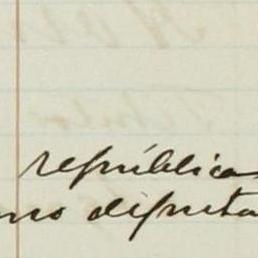 república
no diputa